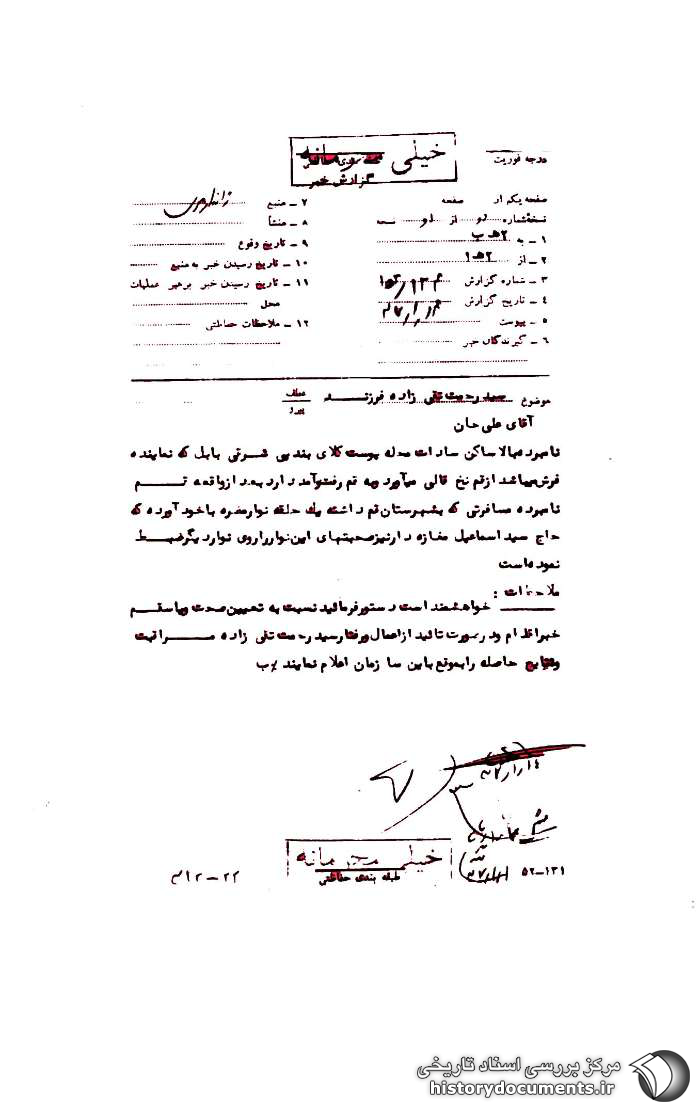 خیلی محرمانه
درجه فوریت
طبقه بندی حفاظتی
گزارش خبر
صفحه یکم از صفحه
نسخه شماره دو از دو نسخه
۱ ـ به ۲هـ ب
۲ ـ از ۲هـ ۱
۳ ـ شماره گزارش
۴ ـ تاریخ گزارش
۵ ـ پیوست
۶ ـ گیرندگان خبر
۷ ـ منبع
۸ ـ منشأ
۹ ـ تاریخ وقوع
۱۰ ـ تاریخ رسیدن خبر به منبع
۱۱ ـ تاریخ رسیدن خبر برهبر عملیات
محل
۱۲ ـ ملاحظات حفاظتی
موضوع سید رحمت تقی زاده فرزنـــد
عطف
پیرو
آقای علی جان
نامبرده بالا ساکن سادات محله پوست کلای بندپی شرقی بابل که نماینده
فرش میباشد از قم نخ قالی میآورد و به قم رفت و آمد دارد بعد از واقعه قـــم
نامبرده مسافرتی که بشهرستان قم داشته یک حلقه نوار مضره با خود آورده که
حاج سید اسماعیل مغازه دار نیز صحبتهای این نوار را روی نوار دیگر ضبـــط
نموده است
ملاحظات :
خواهشمند است دستور فرمائید نسبت به تعیین صحت و یا سقـــم
خبر اقدام و در صورت تائید از اعمال و رفتار سید رحمت تقی زاده مـــراقبت
و نتایج حاصله را بموقع باین سازمان اعلام نمایند
خیلی محرمانه
طبقه بندی حفاظتی
۵۲ـ۱۳۱
۳۱۲ـ۲۲
مرکز بررسی اسناد تاریخی
historydocuments.ir